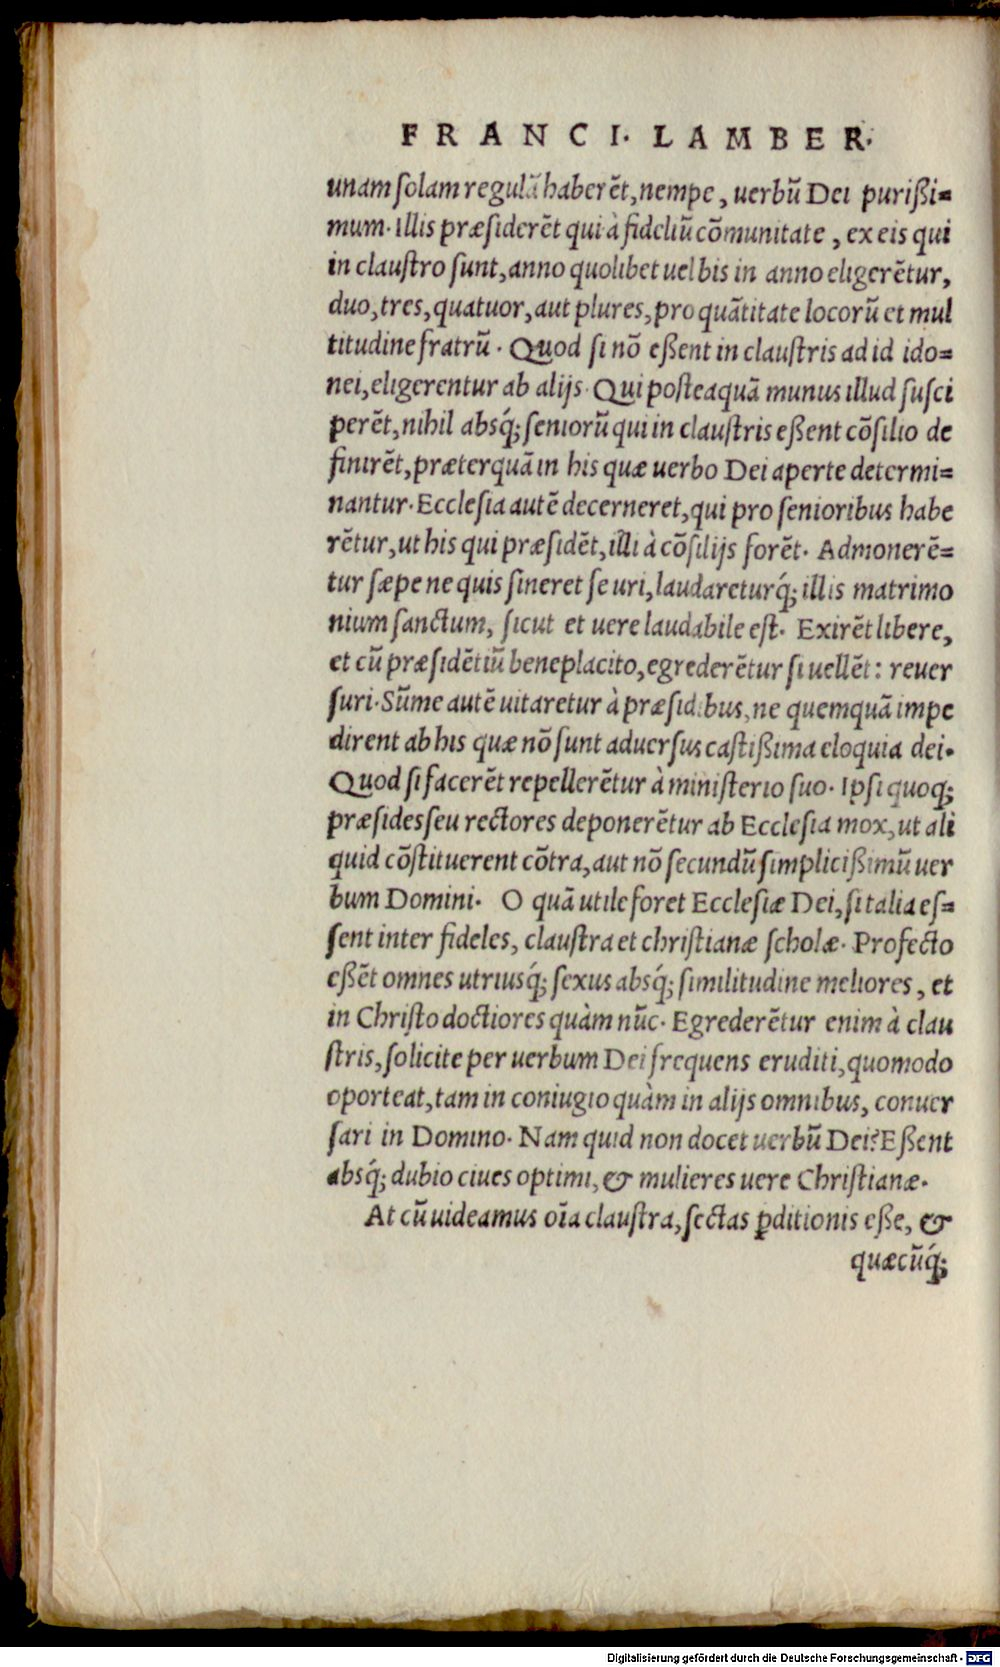 FRANCI. LAMBER.
unam ſolam regulã haberẽt, nempe, uerbũ Dei purißi=
mum. Illis præſiderẽt qui à fideliũ cõmunitate, ex eis qui
in clauſtro ſunt, anno quolibet uel bis in anno eligerẽtur,
duo, tres, quatuor, aut plures, pro quãtitate locorũ et mul
titudine fratrũ. Quod ſi nõ eßent in clauſtris ad id ido=
nei, eligerentur ab alijs. Qui poſteaquã munus illud ſuſci
perẽt, nihil absq́; ſeniorũ qui in clauſtris eßent cõſilio de
finirẽt, præterquã in his quæ uerbo Dei aperte determi=
nantur. Eccleſia autẽ decerneret, qui pro ſenioribus habe
rẽtur, ut his qui præſidẽt, illi à cõſilijs forẽt. Admonerẽ=
tur ſæpe ne quis ſineret ſe uri, laudareturq́; illis matrimo
nium ſanctum, ſicut et uere laudabile eſt. Exirẽt libere,
et cũ præſidẽtiũ beneplacito, egrederẽtur ſi uellẽt: reuer
ſuri. Sũme autẽ uitaretur à præſidibus, ne quemquã impe
dirent ab his quæ nõ ſunt aduerſus caſtißima eloquia dei.
Quod ſi facerẽt repellerẽtur à miniſterio ſuo. Ipſi quoq;
præſides ſeu rectores deponerẽtur ab Eccleſia mox, ut ali
quid cõſtituerent cõtra, aut nõ ſecundũ ſimplicißimũ uer
bum Domini. O quã utile foret Eccleſiæ Dei, ſi talia eſ=
ſent inter fideles, clauſtra et chriſtianæ ſcholæ. Profecto
eßẽt omnes utriusq́; ſexus absq́; ſimilitudine meliores, et
in Chriſto doctiores quàm nũc. Egrederẽtur enim à clau
ſtris, ſolicite per uerbum Dei frequens eruditi, quomodo
oporteat, tam in coniugio quàm in alijs omnibus, conuer
ſari in Domino. Nam quid non docet uerbũ Dei? Eßent
absq́; dubio ciues optimi, & mulieres uere Chriſtianæ.
At cũ uideamus oĩa clauſtra, ſectas ꝑditionis eße, &
quæcũq́;
Digitalisierung gefördert durch die Deutsche Forschungsgemeinschaft - DFG